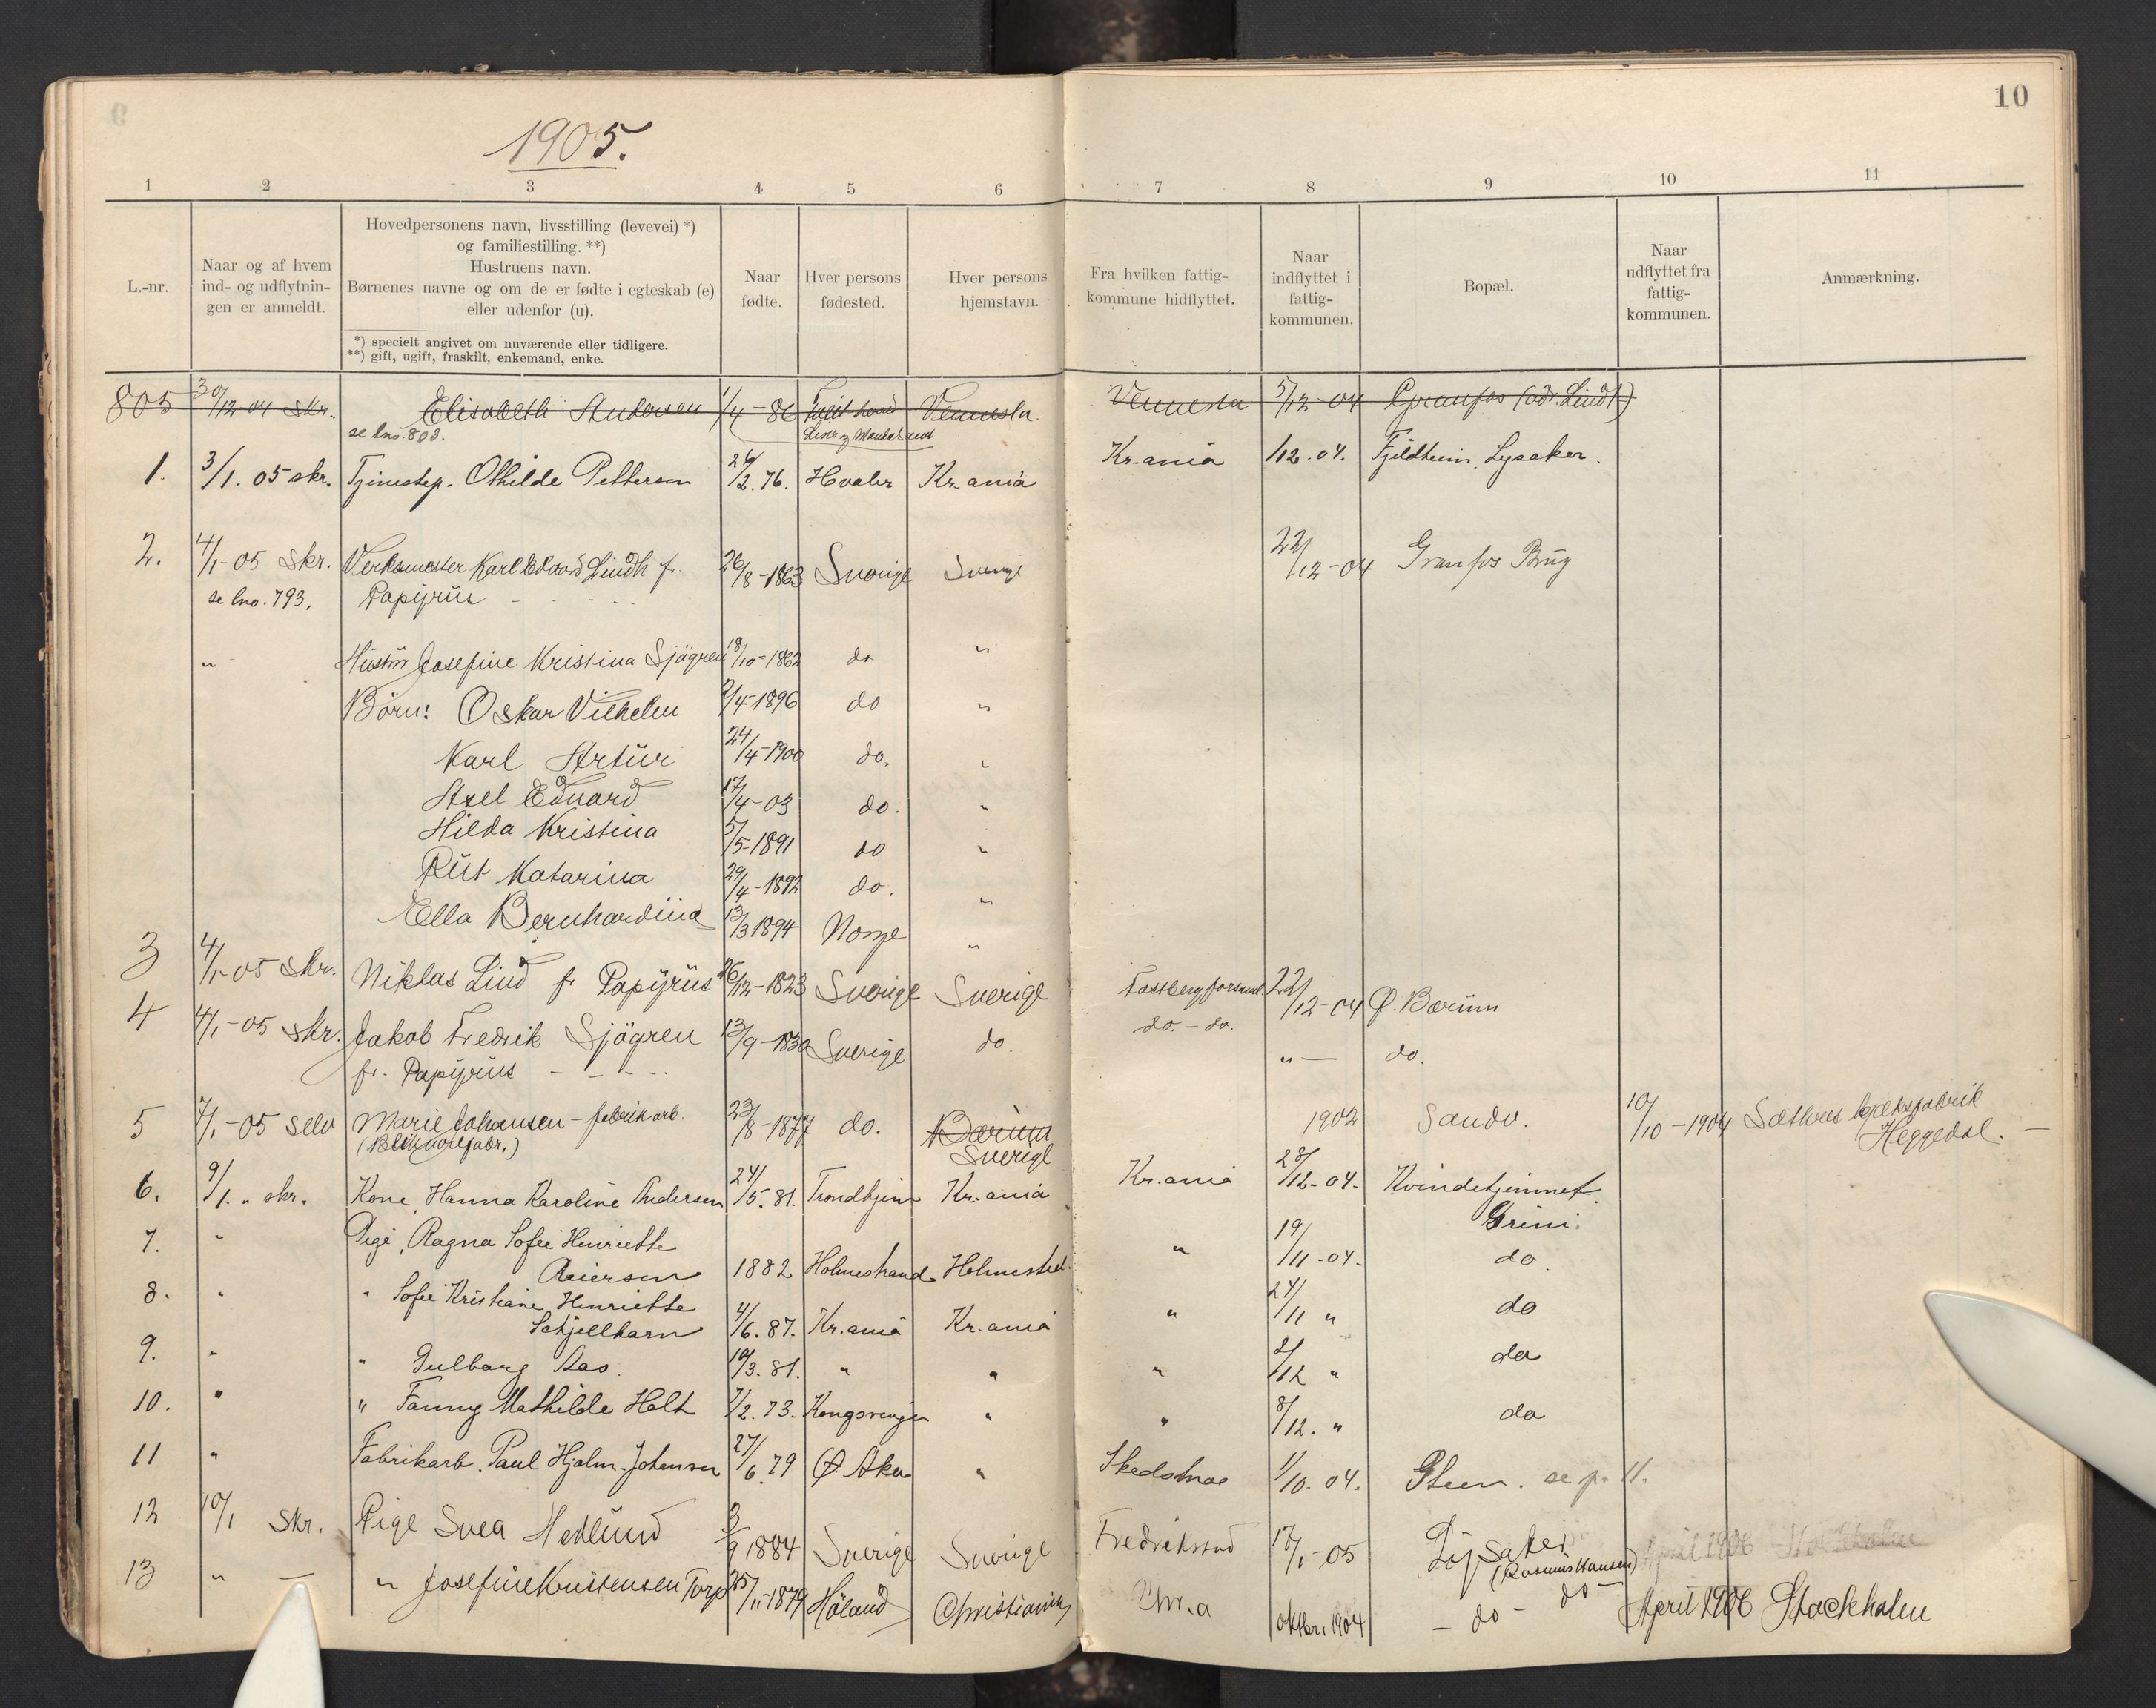 10
1905.
1 2 3 4 5 6 7 8 9 10 11
L.-nr.
Naar og af hvem
ind- og udflytnin-
gen er anmeldt.
Hovedpersonens navn, livsstilling (levevei) *)
og familiestilling. **)
Hustruens navn.
Børnenes navne og om de er fødte i egteskab (e)
eller udenfor (u).
*) specielt angivet om nuværende eller tidligere.
**) gift, ugift, fraskilt, enkemand, enke.
Naar
fødte.
Hver persons
fødested.
Hver persons
hjemstavn.
Fra hvilken fattig-
kommune hidflyttet.
Naar
indflyttet i
fattig-
kommunen.
Bopæl.
Naar
udflyttet fra
fattig-
kommunen.
Anmærkning.
805 30/12-04 skr. Elisabeth Andersen 1/4-86 Vennesla. Vennesla 5/12-04 Granfos (adr. Lindt)
se lno. 808. Lister og Mandals amt
1. 3/1. 05 skr. Tjenestep. Othilde Pettersen 24/2.76. Hvaler Kr.ania Kr.ania 1/12.04. Fjeldheim, Lysaker.
2. 4/1-05 skr. Verksmester Karl Edvard Lindh fr. 26/8-1863 Sverige Sverige 22/12-04 Granfos Brug
se lno. 793. Papyrus - - - -
" Hustru Josefine Kristina Sjögren 18/10-1862 do "
Børn: Oskar Vilhelm 2/4-1896 do "
Karl Artur 24/4-1900 do. "
Axel Edvard 17/4-03 do. "
Hilda Kristina 5/5-1891 do "
Rut Katarina 29/4-1892 do. "
Ella Bernhardina 13/3 1894 Norge "
3 4/1-05 skr. Niklas Lind fr Papyrus 26/12-1823 Sverige Sverige 22/12-04 Ø. Bærum
4 4/1-05 skr. Jakob Fredrik Sjögren 13/9-1830 Sverige do. do. - do. " — do.
fr. Papyrus - - - -
5 7/1-05 selv Marie Johansen - fabrikarb. 23/8-1877 do. Bærum 1902 Sandv. 10/10-1904 Sæthres
(Blikvarefabr.) Sverige Heggedal. —
6. 9/1 " skr. Kone, Hanna Karoline Andersen 24/5.81. Trondhjem Kr.ania Kr.ania 28/12-04. Kvindehjemmet
Grini.
7. " Pige, Ragna Sofie Henriette
Reiersen 1882 Holmestrand Holmestrd. " 19/11-04. do.
8. " " Sofie Kristiane Henriette
Schjellharn 4/6.87. Kr.ania Kr.ania " 24/11 " do
9. " " Gulborg Aas. 10/3.81. " " " 2/12 " do
10. " " Fanny Mathilde Holt 7/2.73. Kongsvinger " " 8/12. " do
11 " Fabrikarb. Paul Hjalm. Johansen 27/6.79 Ø. Aker " Skedsmoe 1/10.04. Steen. se p. 11.
12 10/1 skr. Pige Svea Hedlund 3/9 1884 Sverige Sverige Fredriksstad 17/1-05 Lysaker April 1906 Stockholm
(Rasmus Hansen)
13 " — " Josefine Kristensen Torp 25/11-1879 Høland Christiania Chr.a oktbr. 1904 - do - do - April 1906 Stockholm